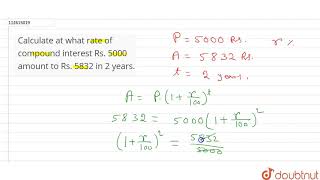 112615019
Calculate at what rate of
compound interest Rs. 5000
amount to Rs. 5832 in 2 years.
P = 5000 Rs. r %
A = 5832 Rs.
t = 2 years.
A = P(1 + r/100)^t
5832 = 5000(1 + r/100)^2
(1 + r/100)^2 = 5832/5000
doubtnut